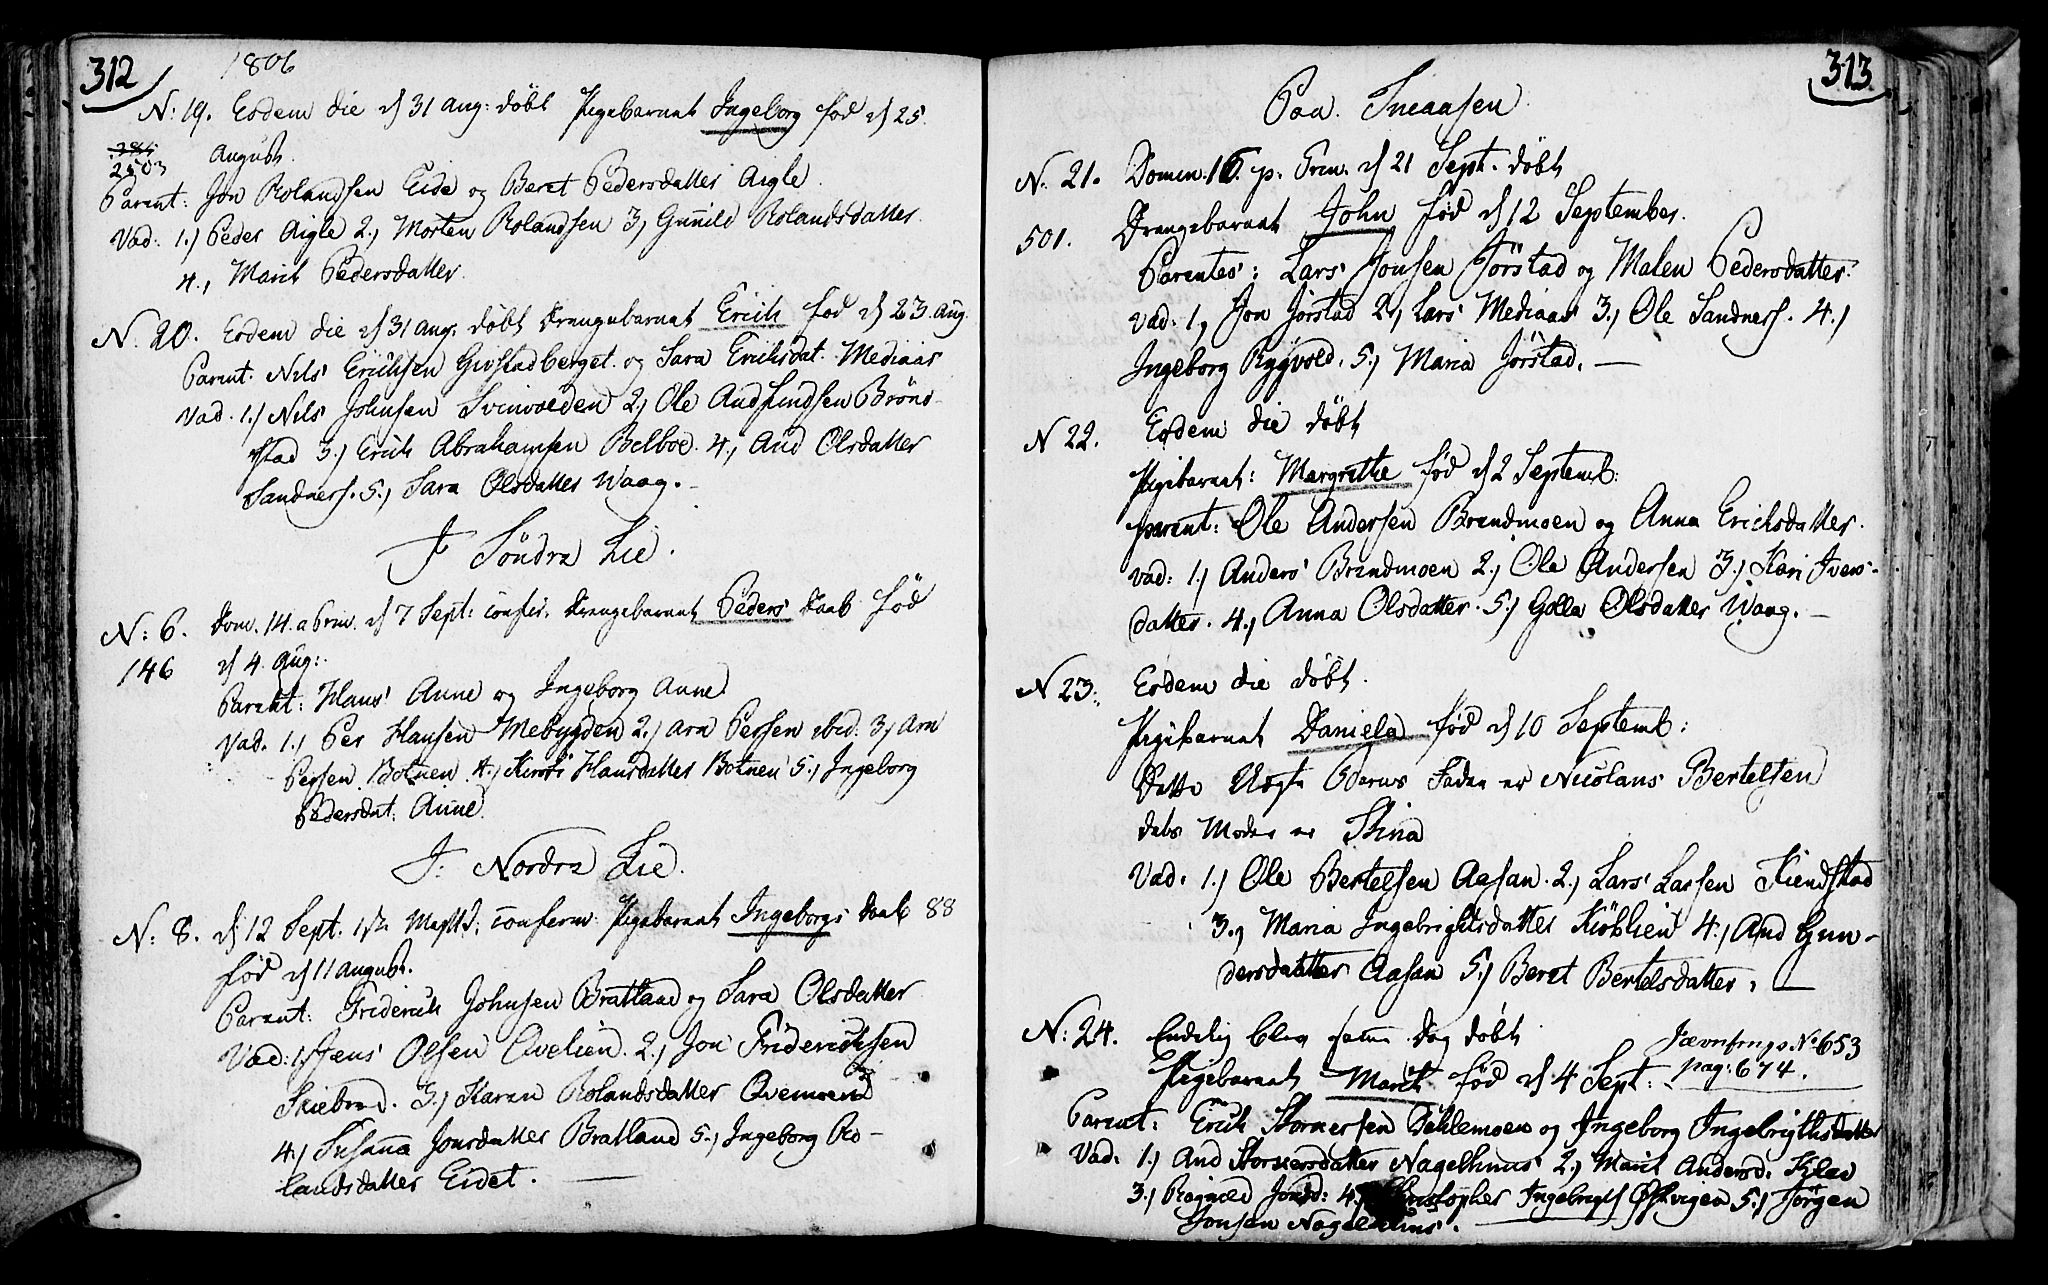 312
1806
N: 19. Eodem die d 31 Aug: döbt Pigebarnet Ingeborg fød d 25
August.
2503
Parent: Jon Rolandsen Eide og Beret Pedersdatter Aigle.
Vad: 1.) Peder Aigle 2.) Morten Rolandsen 3.) Gunild Rolandsdatter.
4.) Marit Pedersdatter.
N. 20. Eodem die d 31 Aug. döbt Drengebarnet Erich fød d 23. Aug.
Parent. Nils Erichsen Givstadberget og Sara Erichsdat. Mediaas
Vad. 1.) Nils Johnsen 2.) Ole Brönd-
stad 3.) Erich Abrahamsen Belboe. 4.) And Olsdatter
Sandness. 5.) Sara Olsdatter Waag.
I Söndre Lie.
N: 6. Dom. 14. a Trin. d 7 Sept: confir. Drengebarnet Peders Daab fød
146 d 4. Aug:
Parent: Hans Anne og Ingeborg Anne
Vad. 1.) Per Hansen Mebygden 2.) Arn Persen ibid. 3.) Arn
Persen Botnen 4.) Kirsti Hansdatter Botnen 5.) Ingeborg
Pedersdat: Anne.
I: Nordre Lie.
N: 8. d 12 Sept. conferm: Pigebarnet Ingeborgs Daab 88
fød d 11 August.
Parent: Friderich Johnsen Bratland og Sara Olsdatter
Vad: 1.) Jens Olsen Qvelien. 2.) Jon Friderichsen
Skiebred. 3.) Karen Rolandsdatter Qvemoen
4.) Susanna Jonsdatter Bratland 5.) Ingeborg Ro-
landsdatter Eidet.
313
Paa. Sneaasen
N. 21. Domin. 16. p. Trin. d 21 Sept. döbt
501. Drengebarnet John fød d 12 September.
Parentes: Lars Jonsen Jörstad og Malen Pedersdatter.
Vad. 1.) Jon Jörstad 2.) Lars Mediaas 3.) Ole Sandness. 4.)
Ingeborg Rygvold. 5.) Maria Jörstad.
N 22. Eodem die döbt
Pigebarnet: Margrethe fød d 2 Septemb:
parent: Ole Andersen Brandmoen og Anna Erichsdatter.
Vad: 1.) Anders Brandmoen 2.) Ole Andersen 3.) Kari Ivers-
datter. 4.) Anna Olsdatter. 5.) Golla Olsdatter Waag.
N 23. Eodem die döbt.
Pigebarnet Daniela fød d 10 Septemb:
Dette Uægte Barns Fader er Nicolaus Bertelsen
dets Moder er Stina
Vad. 1.) Ole Bertelsen Aasan. 2.) Lars Larsen Fiendstad
3.) Maria Ingebrigtsdatter Kiöhlien 4.) And Gun-
dersdatter Aasan 5.) Beret Bertelsdatter.
N: 24. Endelig blev samme Dag döbt
Jævnfrings No 653
Pigebarnet Marit fød d 4 Sept:
pag: 674.
Parent: Erich Stornersen Behlemoen og Ingeborg Ingebrigthsdatter
Vad. 1.) And Stornersdatter Nagelhuus 2.) Marit Andersd. Klæv
3.) Ragnild Jonsd: 4.) Christopher Ingebrigts Östvigen 5.) Jörgen
Jonsen Nagelhuus.